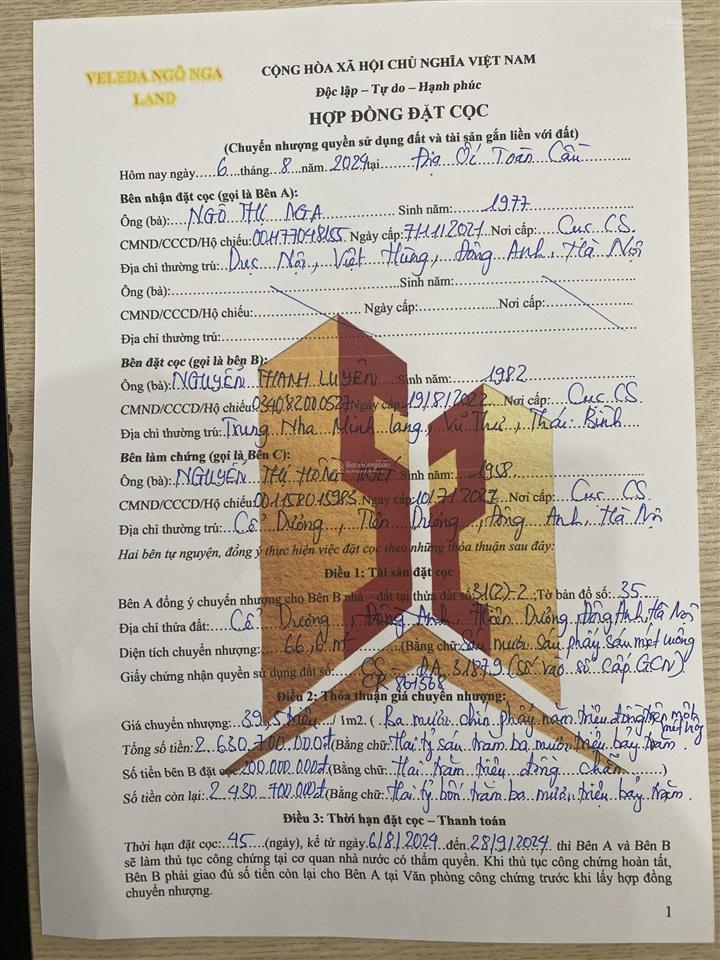 VELEDA NGÔ NGA
LAND
CỘNG HÒA XÃ HỘI CHỦ NGHĨA VIỆT NAM
Độc lập – Tự do – Hạnh phúc
HỢP ĐỒNG ĐẶT CỌC
(Chuyển nhượng quyền sử dụng đất và tài sản gắn liền với đất)
Hôm nay ngày 6 tháng 8 năm 2024 tại Địa Ốc Toàn Cầu
Bên nhận đặt cọc (gọi là Bên A):
Ông (bà): NGÔ THỊ NGA Sinh năm: 1977
CMND/CCCD/Hộ chiếu: 001177048155 Ngày cấp: 7/11/2021 Nơi cấp: Cục CS.
Địa chỉ thường trú: Dục Nội, Việt Hùng, Đông Anh, Hà Nội
Ông (bà): Sinh năm:
CMND/CCCD/Hộ chiếu: Ngày cấp: Nơi cấp:
Địa chỉ thường trú:
Bên đặt cọc (gọi là bên B):
Ông (bà): NGUYỄN THANH LUYÊN Sinh năm: 1982
CMND/CCCD/Hộ chiếu: 034082000527 Ngày cấp: 19/8/2022 Nơi cấp: Cục CS.
Địa chỉ thường trú: Trung Nha Minh Lãng, Vũ Thư, Thái Bình
Bên làm chứng (gọi là Bên C):
Ông (bà): NGUYỄN THỊ HỒNG Sinh năm: 1958
CMND/CCCD/Hộ chiếu: 001158015983 Ngày cấp: 10/7/2022 Nơi cấp: Cục CS.
Địa chỉ thường trú: Cổ Dương, Tiên Dương, Đông Anh, Hà Nội
Hai bên tự nguyện, đồng ý thực hiện việc đặt cọc theo những thỏa thuận sau đây:
Điều 1: Tài sản đặt cọc
Bên A đồng ý chuyển nhượng cho Bên B nhà – đất tại thửa đất số: 31(2)-2; Tờ bản đồ số: 35
Địa chỉ thửa đất: Cổ Dương, Đông Anh, Tiên Dương, Đông Anh, Hà Nội
Diện tích chuyển nhượng: 66,6 m² (Bằng chữ: Sáu mươi sáu phẩy sáu mét vuông
Giấy chứng nhận quyền sử dụng đất số: CS - ĐA 31879 (số vào sổ cấp GCN)
CR 861568
Điều 2: Thỏa thuận giá chuyển nhượng:
Giá chuyển nhượng: 39,5 triệu / 1m2. (Ba mươi chín phẩy năm triệu đồng trên một mét vuông
Tổng số tiền: 2.630.700.000đ (Bằng chữ: Hai tỷ sáu trăm ba mươi triệu bảy trăm.
Số tiền bên B đặt cọc: 200.000.000đ (Bằng chữ: Hai trăm triệu đồng chẵn )
Số tiền còn lại: 2.430.700.000đ (Bằng chữ: Hai tỷ bốn trăm ba mươi triệu bảy trăm.
Điều 3: Thời hạn đặt cọc – Thanh toán
Thời hạn đặt cọc: 45 (ngày), kể từ ngày 6/8/2024 đến 28/9/2024 thì Bên A và Bên B
sẽ làm thủ tục công chứng tại cơ quan nhà nước có thẩm quyền. Khi thủ tục công chứng hoàn tất,
Bên B phải giao đủ số tiền còn lại cho Bên A tại Văn phòng công chứng trước khi lấy hợp đồng
chuyển nhượng.
1